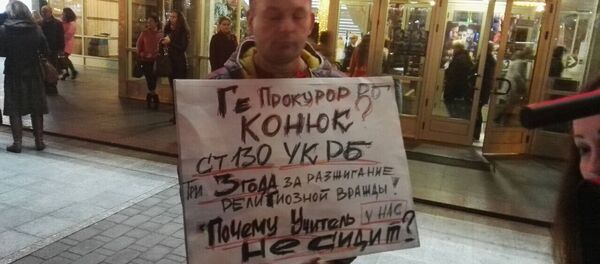 Где Прокурор РБ
КОНЮК?
СТ 130 УК РБ
ТРИ 3 ГОДА ЗА РАЗЖИГАНИЕ
РЕЛИГИОЗНОЙ ВРАЖДЫ!
"Почему Учитель У НАС
НЕ СИДИТ?